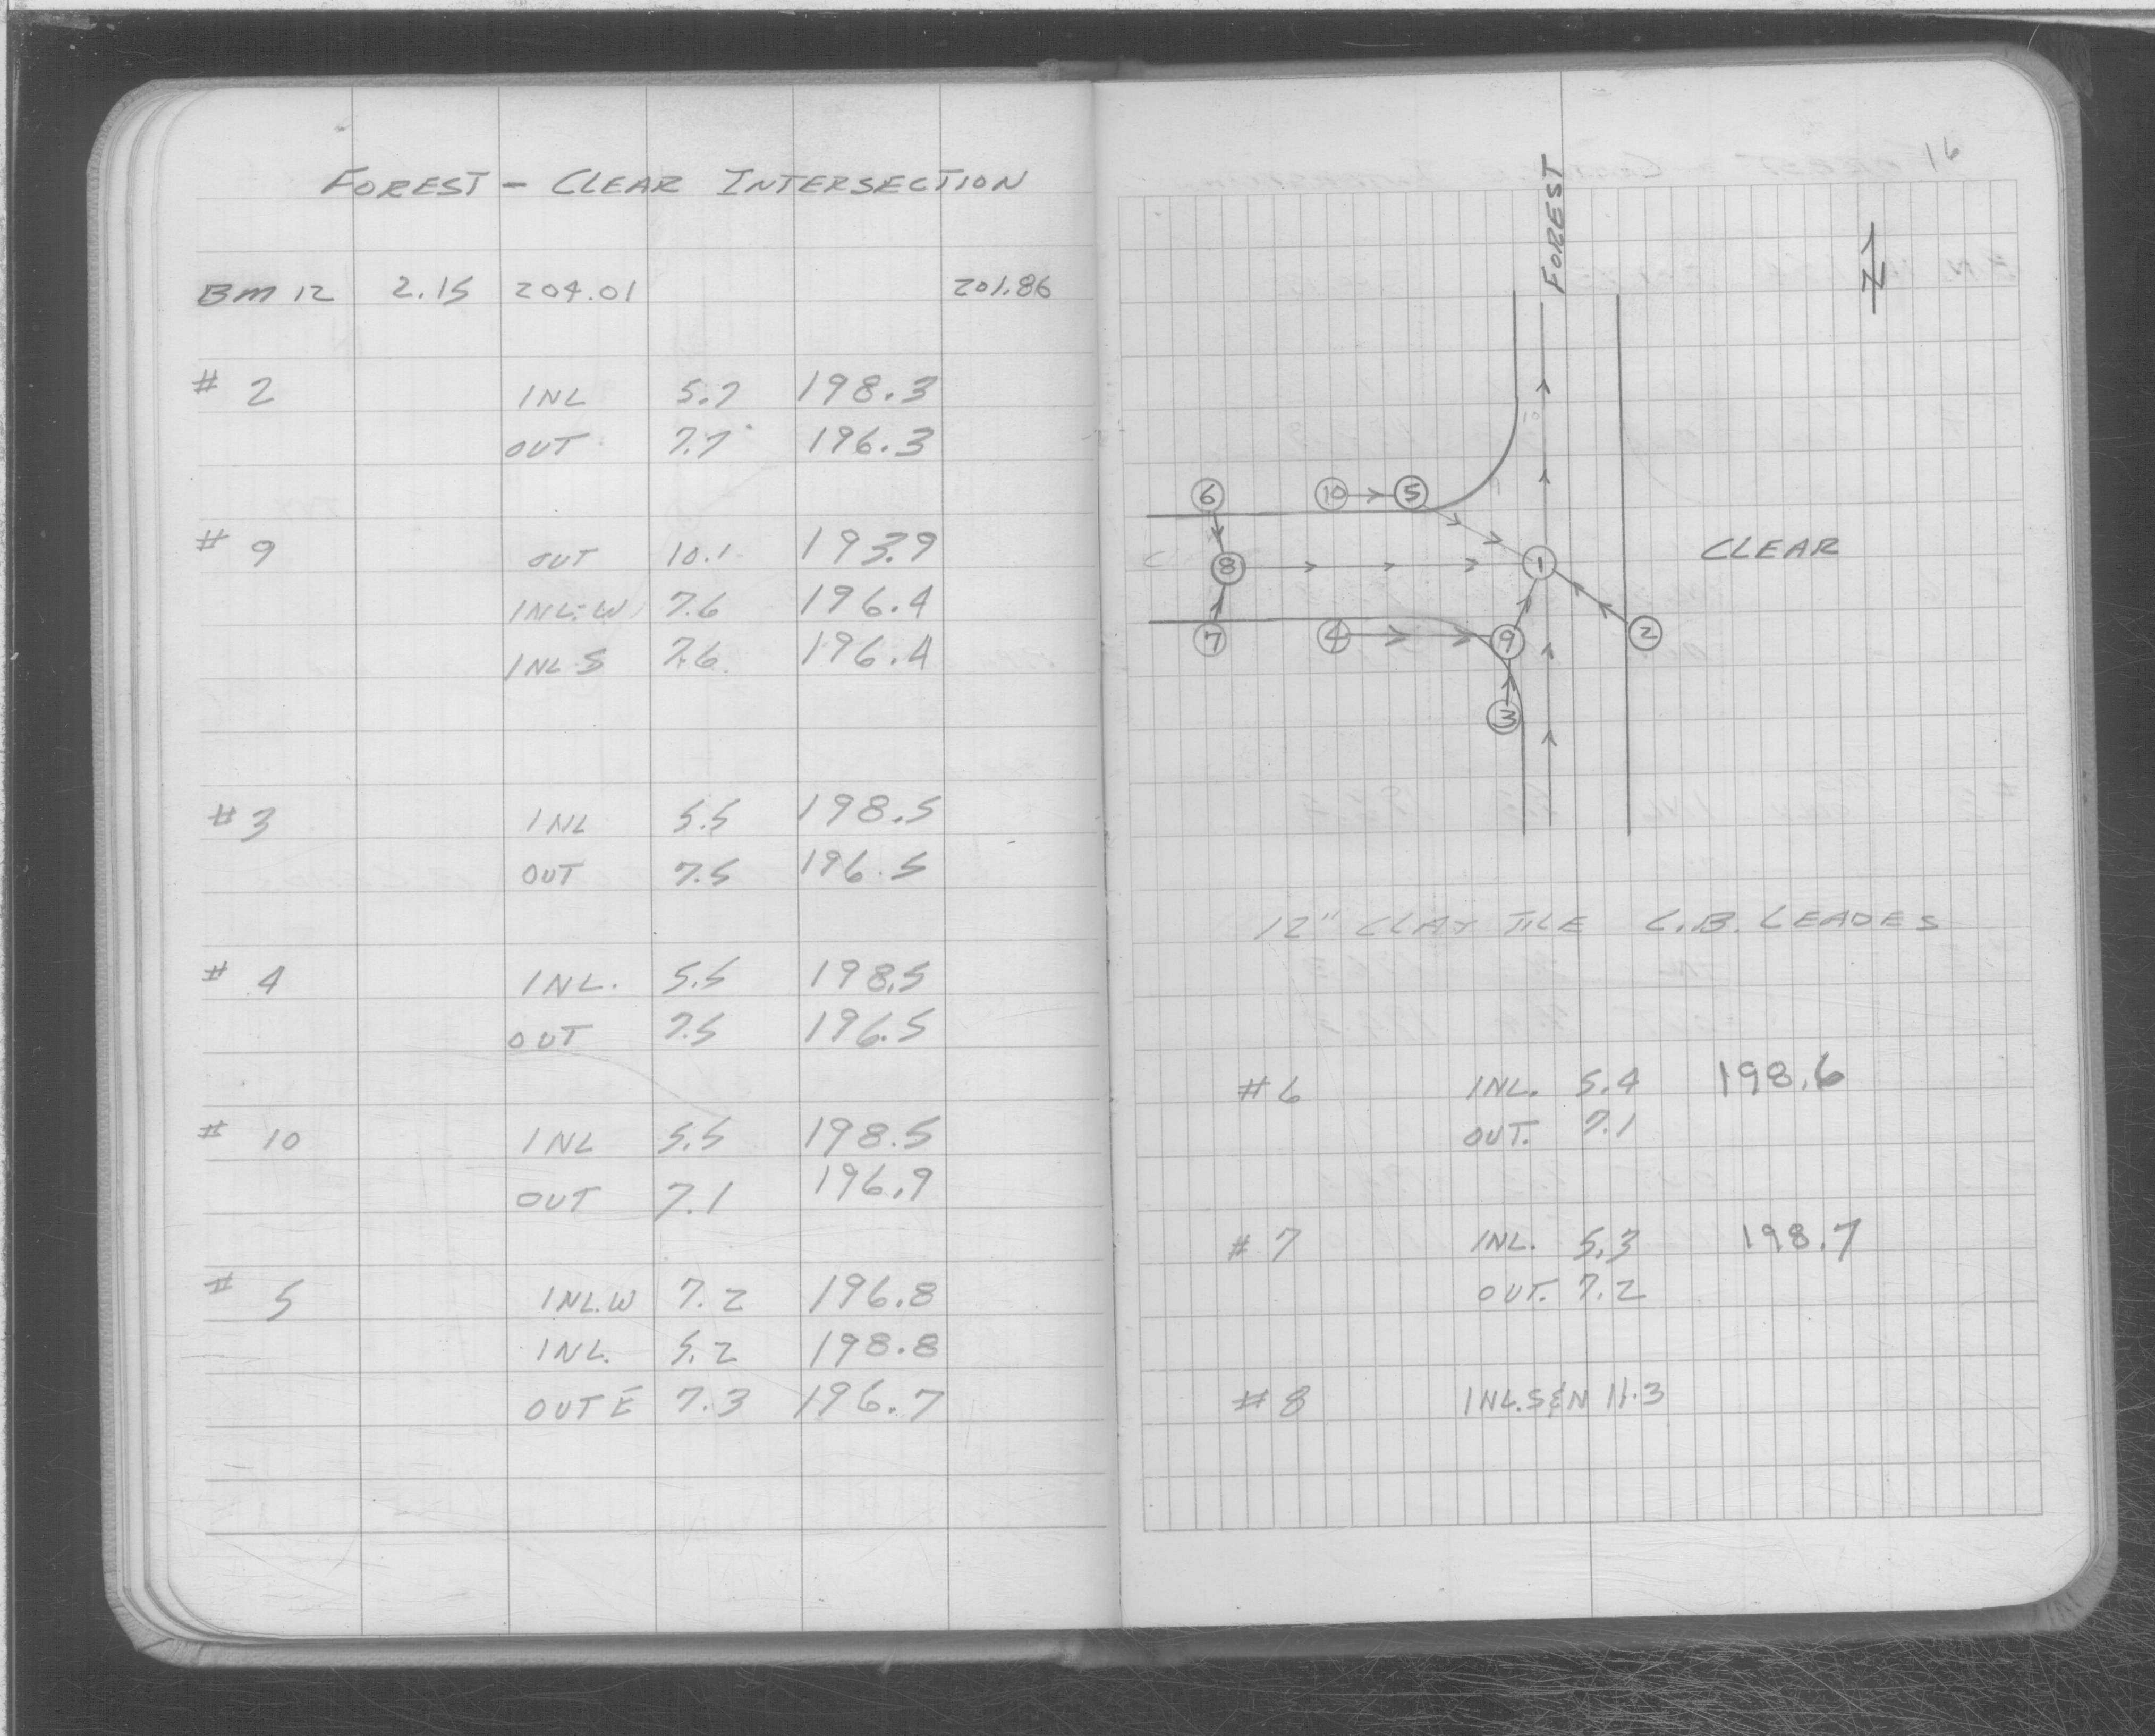 FOREST - CLEAR INTERSECTION
BM 12 2.15 204.01 201.86
# 2 INL 5.7 198.3
OUT 7.7 196.3
# 9 OUT 10.1 193.9
INL. W 7.6 196.4
INL S 7.6 196.4
# 3 INL 5.5 198.5
OUT 7.5 196.5
# 4 INL. 5.5 198.5
OUT 7.5 196.5
# 10 INL 5.5 198.5
OUT 7.1 196.9
# 5 INL.W 7.2 196.8
INL. 5.2 198.8
OUT E 7.3 196.7
16
FOREST
N
6 10 5
8 1 CLEAR
7 4 9 2
3
12" CLAY TILE C.B. LEADES
# 6 INL. 5.4 198.6
OUT. 7.1
# 7 INL. 5.3 198.7
OUT. 7.2
# 8 INL.S&N 11.3